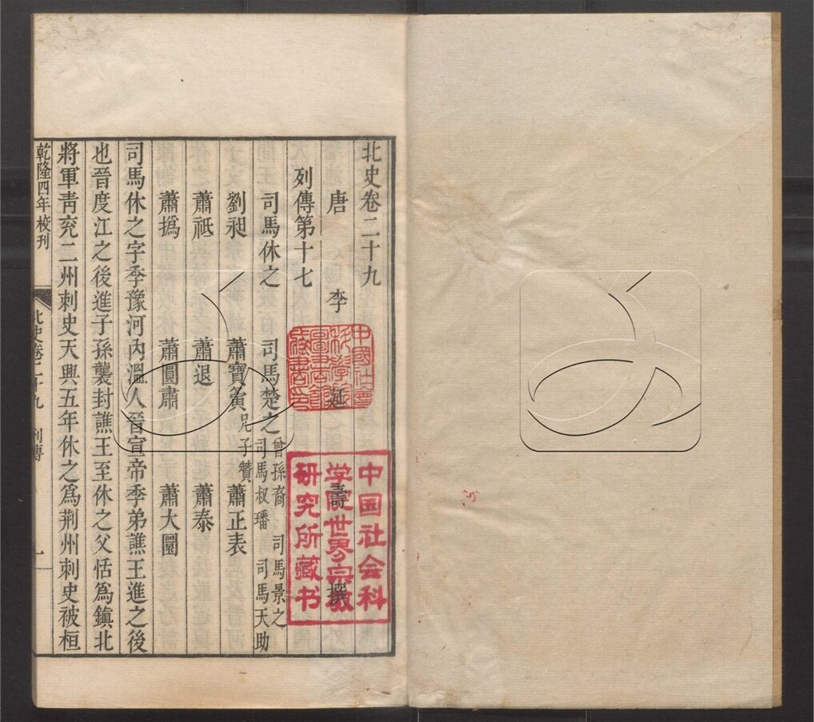 北史卷二十九
唐 李 延 壽 撰
列傳第十七
司馬休之 司馬楚之 曾孫裔 司馬叔璠 司馬景之 司馬天助
劉昶 蕭寶夤 兄子贊 蕭正表
蕭祗 蕭退 蕭泰
蕭撝 蕭圓肅 蕭大圜
司馬休之字季豫河內溫人晉宣帝季弟譙王進之後
也晉度江之後進子孫襲封譙王至休之父恬爲鎮北
將軍青兗二州刺史天興五年休之爲荆州刺史被桓
乾隆四年校刊 北史卷二十九 列傳 一
中國社會科學院圖書館藏書印
中国社会科学院世界宗教研究所藏书